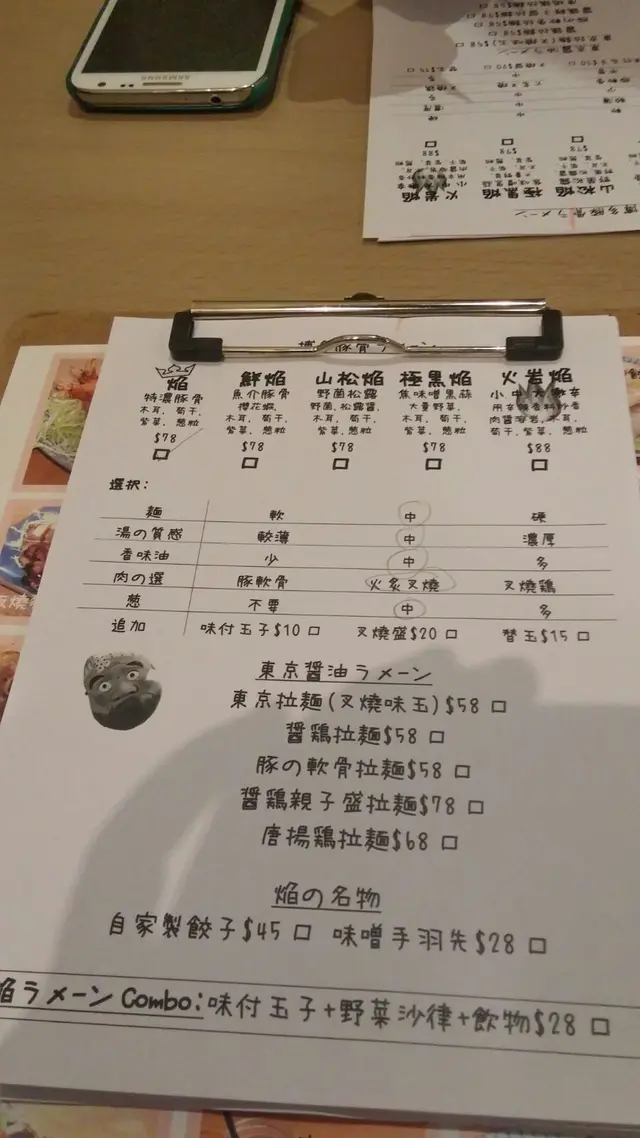 SAMSUNG
焔 鮮焔 山松焔 極黒焔 火岩焔
特濃豚骨 魚介豚骨 野菌松露 焦味噌黒蒜 小中大激辛
木耳, 筍干, 櫻花蝦, 野菌, 松露醤, 大量野菜,
紫菜, 葱粒 木耳, 筍干, 木耳, 筍干, 木耳, 筍干, 肉醤溶岩, 木耳,
紫菜, 葱粒 紫菜, 葱粒 紫菜, 葱粒 筍干, 紫菜, 葱粒
$78 $78 $78 $78 $88
選択:
麺 軟 中 硬
湯の質感 較薄 中 濃厚
香味油 少 中 多
肉の選 豚軟骨 火炙叉燒 叉燒鶏
葱 不要 中 多
追加 味付玉子$10 叉燒盛$20 替玉$15
東京醤油ラーメン
東京拉麺(叉燒味玉)$58
醤鶏拉麺$58
豚の軟骨拉麺$58
醤鶏親子盛拉麺$78
唐揚鶏拉麺$68
焔の名物
自家製餃子$45 味噌手羽先$28
焔ラーメン Combo:味付玉子+野菜沙律+飲物$28